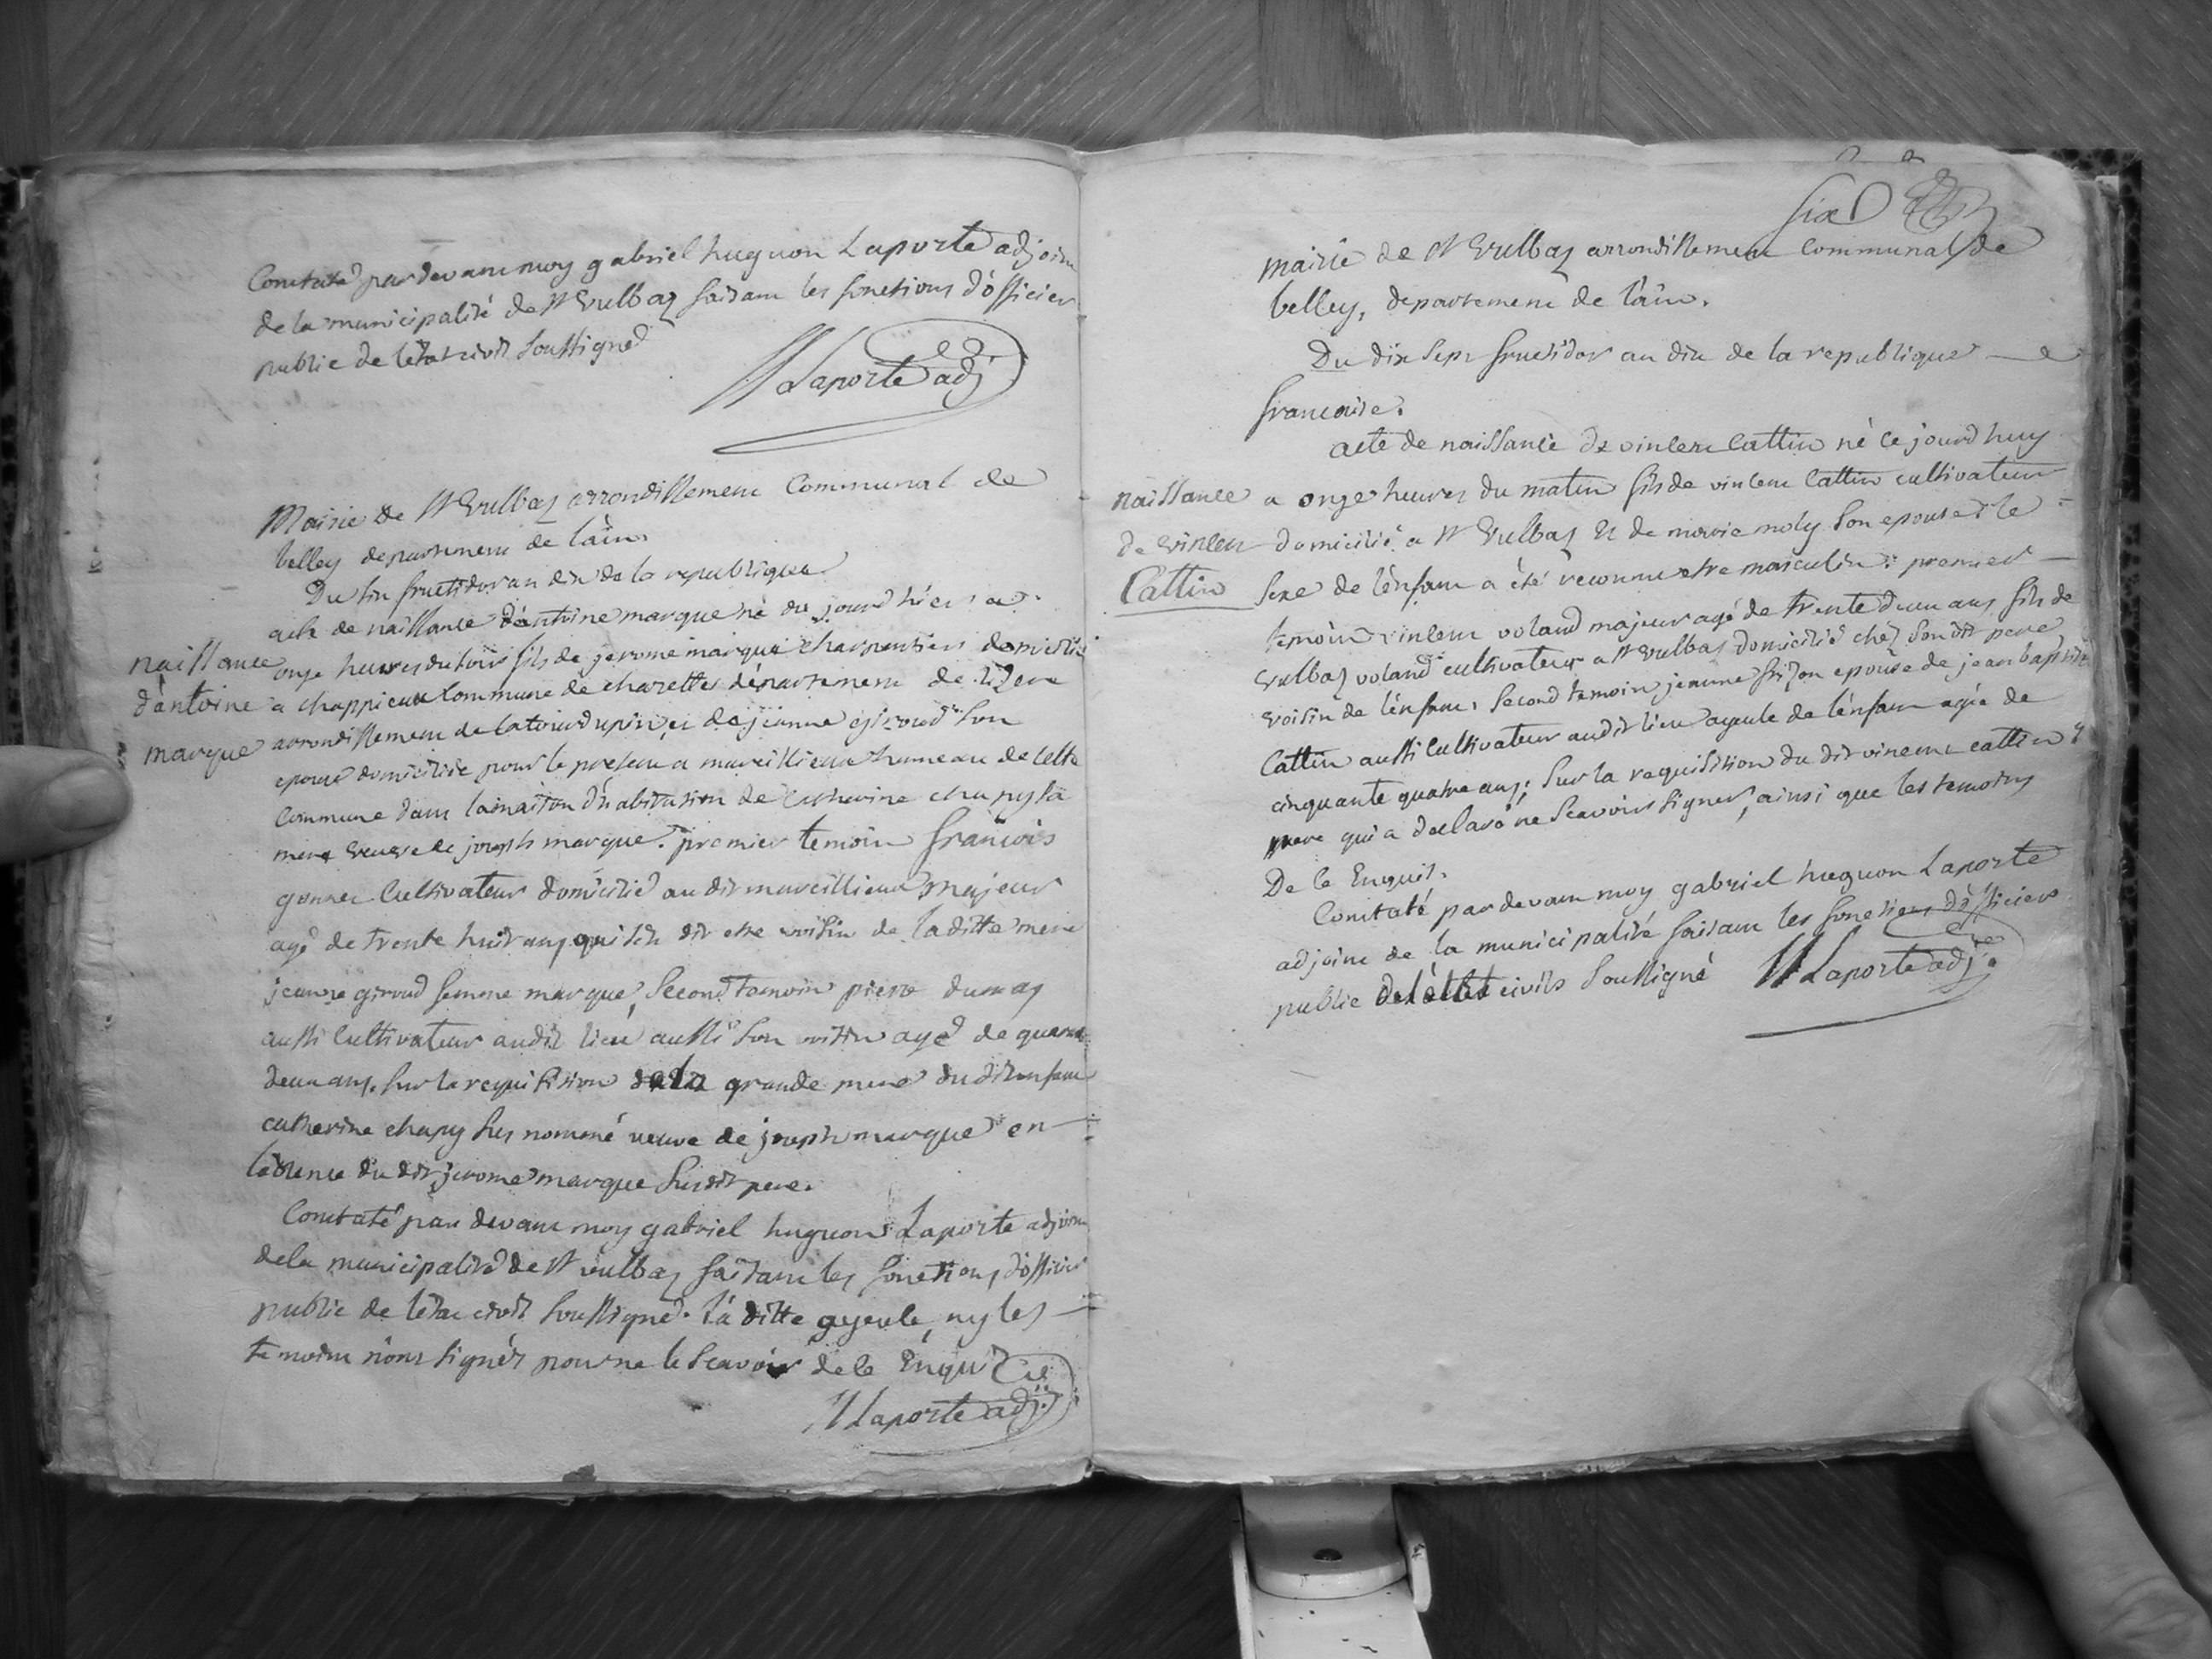 Constaté par devant moy gabriel huguon Laporte adjoint
de la municipalité de St Vulbaz faisant les fonctions d'officier
public de l'état civil soussigné
Laporte adj
Mairie de St Vulbaz arrondissement Communal de
belley departement de l'ain.
Du six fructidor an dix de la republique
acte de naissance d'antoine marque né du jourd hier a
naissance
d'antoine
marque
onze heures du soir fils de jerome marque charpentier domicilié
a chappieux Commune de charettes département de l'izere
arrondissement de latourdupin, et de jeanne giroud son
epouse domiciliée pour le present a marcillieux hameau de cette
Commune dans la maison d'habitation de catherine chapuy sa
mere veuve de joseph marque. premier temoin françois
gonnet Cultivateur domicilié au dit marcillieux majeur
agé de trente huit ans qui s'est dit etre voisin de la ditte mere
jeanne giroud femme marque, second temoin piere dumas
aussi Cultivateur audit lieu aussi son voisin agé de quarante
deux ans. sur la requisition de la grande mere du dit enfant
catherine chapuy sus nommé veuve de joseph marque en
l'absence du dit jerome marque susdit pere.
Constaté par devant moy gabriel huguon Laporte adjoint
de la municipalité de St vulbaz faisant les fonctions d'officier
public de l'état civil soussigné. la ditte ayeule, ny les
temoins n'ont signés pour ne le scavoir de ce Enquis
Laporte adj.
six
mairie de St Vulbaz arrondissement Communal de
belley, departement de l'ain.
Du dix sept fructidor an dix de la republique
francaise.
acte de naissance de vincent Cattin né ce jourd huy
naissance
de vincent
Cattin
a onze heures du matin fils de vincent Cattin cultivateur
domicilié a St Vulbaz et de marie moly son epouse. le
sexe de l'enfant a été reconnu etre masculin. premier
temoin vincent voland majeur agé de trente deux ans fils de
vulbaz voland cultivateur a St vulbaz domicilié chéz son dit pere
voisin de l'enfant, second temoin jeanne epouse de jean baptiste
Cattin aussi Cultivateur audit lieu ayeule de l'enfant agée de
cinquante quatre ans; sur la requisition du dit vincent cattin
pere qui a declaré ne scavoir signer, ainsi que les temoins
De ce Enquis.
Constaté par devant moy gabriel huguon Laporte
adjoint de la municipalité faisant les fonctions d'officier
public de l'état civils soussigné Laporte adj.